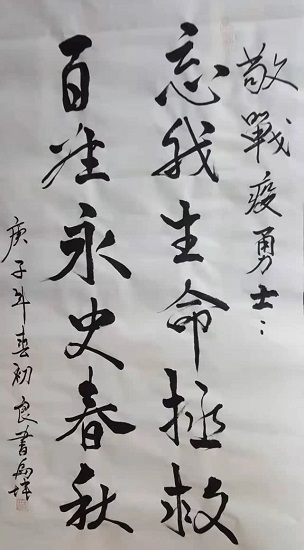 敬戰疫勇士：
忘我生命拯救
百姓永史春秋
庚子年春初良書